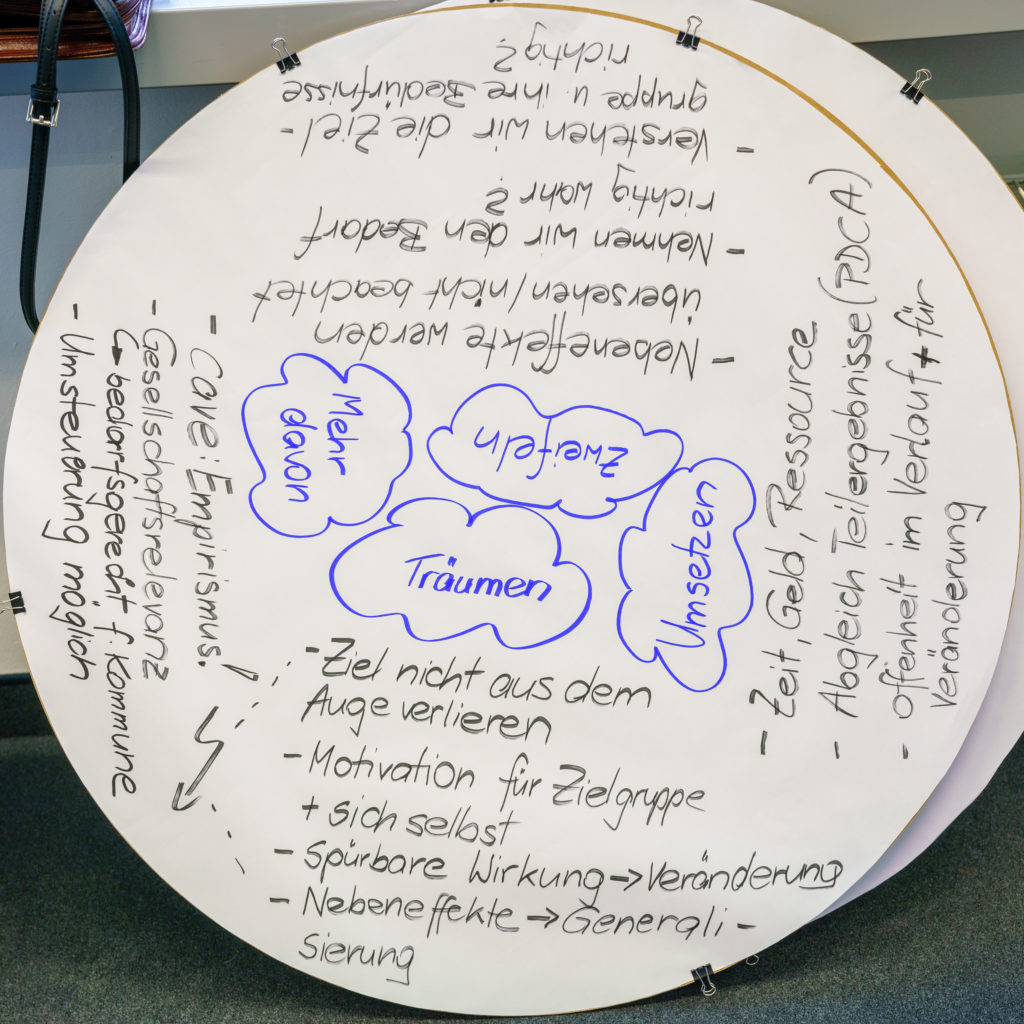 Träumen
- Ziel nicht aus dem
Auge verlieren
- Motivation für Zielgruppe
+ sich selbst
- Spürbare Wirkung → Veränderung
- Nebeneffekte → Generali-
sierung
Umsetzen
- Zeit, Geld, Ressource
- Abgleich Teilergebnisse (PDCA)
- offenheit im Verlauf + für
Veränderung
Zweifeln
- Nebeneffekte werden
übersehen/nicht beachtet
- Nehmen wir den Bedarf
richtig wahr?
- Verstehen wir die Ziel-
gruppe u ihre Bedürfnisse
richtig?
Mehr
davon
- Cave: Empirismus!
- Gesellschaftsrelevanz
↳ bedarfsgerecht f. Kommune
- Umsteuerung möglich